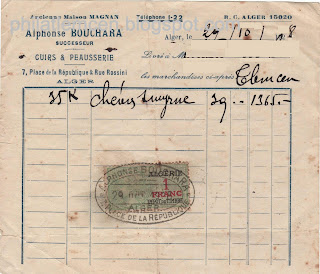 philatelemcen.blogspot.com
Ancienne Maison MAGNAN
Téléphone 1-22
R. C. ALGER 15020
Alphonse BOUCHARA
SUCCESSEUR
CUIRS & PEAUSSERIE
7, Place de la République & Rue Rossini
ALGER
Alger, le 29/10/ 8
Doit M
les marchandises ci-après Tlemcen
35 K Chèvres 39 -- 1365.--
ALPHONSE BOUCHARA
ALGÉRIE
1
FRANC
29 OCT
ALGER
PLACE DE LA RÉPUBLIQUE